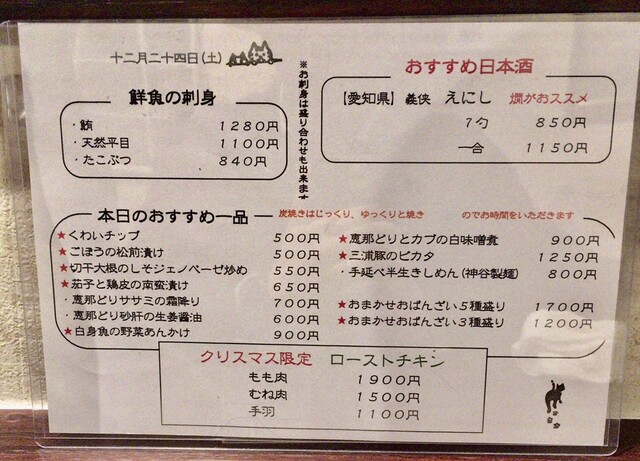 十二月二十四日(土)
鮮魚の刺身
・鮪 1280円
・天然平目 1100円
・たこぶつ 840円
※お刺身は盛り合わせも出来ます
おすすめ日本酒
【愛知県】 義侠 えにし 燗がおススメ
7勺 850円
一合 1150円
本日のおすすめ一品
炭焼きはじっくり、ゆっくりと焼き のでお時間をいただきます
★くわいチップ 500円
★ごぼうの松前漬け 500円
★切干大根のしそジェノベーゼ炒め 550円
★茄子と鶏皮の南蛮漬け 650円
・恵那どりササミの霜降り 700円
・恵那どり砂肝の生姜醤油 600円
★白身魚の野菜あんかけ 900円
★恵那どりとカブの白味噌煮 900円
★三浦豚のピカタ 1250円
・手延べ半生きしめん(神谷製麺) 800円
★おまかせおばんざい5種盛り 1700円
★おまかせおばんざい3種盛り 1200円
クリスマス限定 ローストチキン
もも肉 1900円
むね肉 1500円
手羽 1100円